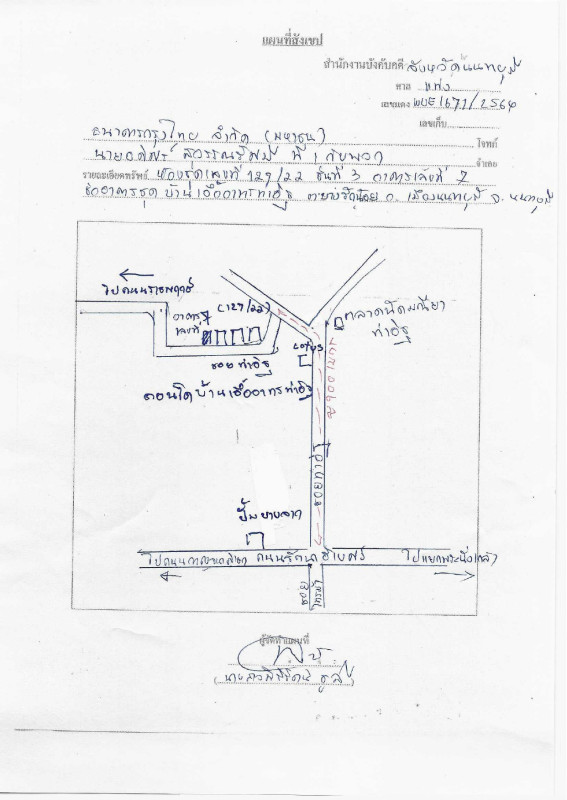 แผนที่สังเขป
สำนักงานบังคับคดี จังหวัดนนทบุรี
ศาล แพ่ง
เลขแดง ผบE1671/2564
เลขเก็บ
ธนาคารกรุงไทย จำกัด (มหาชน) โจทก์
สุวรรณรัศมี ที่ 1 กับพวก จำเลย
รายละเอียดทรัพย์ ห้องชุดเลขที่ 129/22 ชั้นที่ 3 อาคารเลขที่ 7
ชื่ออาคารชุด บ้านเอื้ออาทรท่าอิฐ อ. เมืองนนทบุรี จ. นนทบุรี
ไปถนนราชพฤกษ์
อาคาร เลขที่ 7 (129/22)
ตลาดนัดมณียา
ท่าอิฐ
Lotus
ซอยท่าอิฐ
คอนโดบ้านเอื้ออาทรท่าอิฐ
ซอยท่าอิฐ
ปั๊มบางจาก
ไปถนนกาญจนาภิเษก ถนนรัตนาธิเบศร์ ไปแยกพระนั่งเกล้า
ซอย
ผู้จัดทำแผนที่